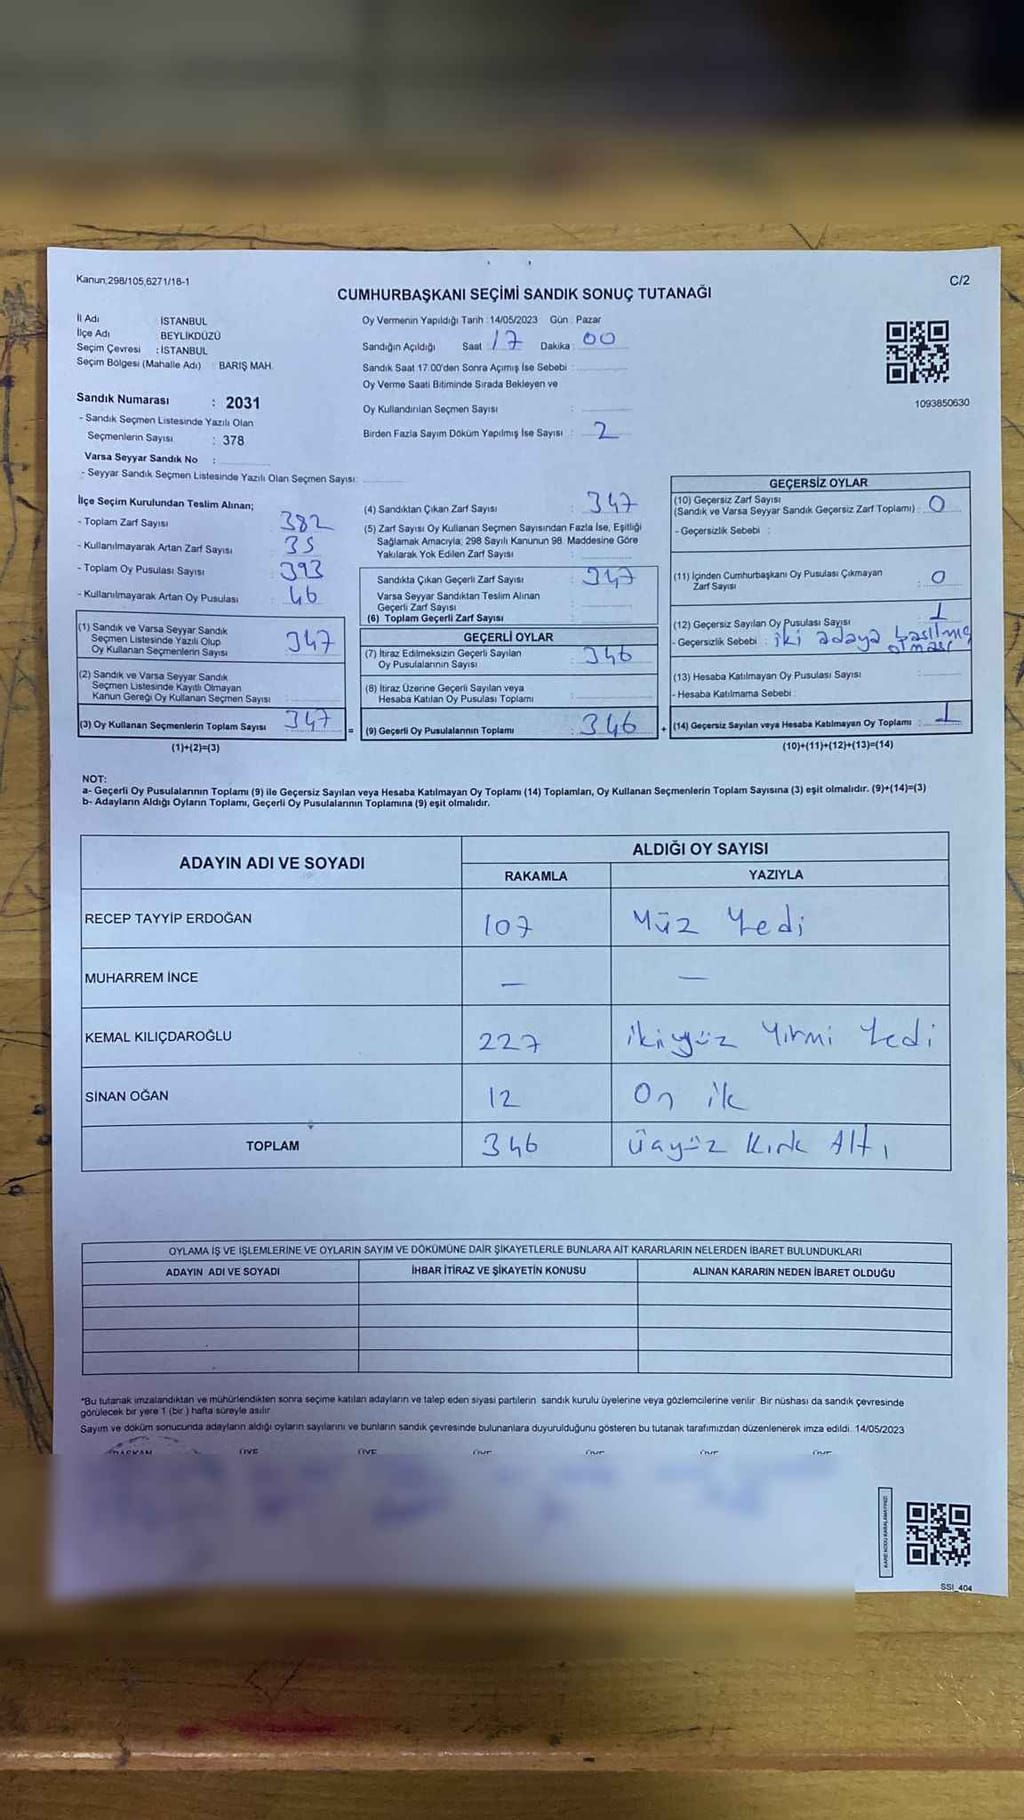 Kanun;298/105,6271/18-1
C/2
CUMHURBAŞKANI SEÇİMİ SANDIK SONUÇ TUTANAĞI
İl Adı İSTANBUL
İlçe Adı BEYLİKDÜZÜ
Seçim Çevresi : İSTANBUL
Seçim Bölgesi (Mahalle Adı) : BARIŞ MAH.
Sandık Numarası : 2031
- Sandık Seçmen Listesinde Yazılı Olan
Seçmenlerin Sayısı : 378
Varsa Seyyar Sandık No :
- Seyyar Sandık Seçmen Listesinde Yazılı Olan Seçmen Sayısı:
Oy Vermenin Yapıldığı Tarih : 14/05/2023 Gün : Pazar
Sandığın Açıldığı Saat : 17 Dakika : 00
Sandık Saat 17.00'den Sonra Açımış İse Sebebi :
Oy Verme Saati Bitiminde Sırada Bekleyen ve
Oy Kullandırılan Seçmen Sayısı :
Birden Fazla Sayım Döküm Yapılmış İse Sayısı : 2
1093850630
İlçe Seçim Kurulundan Teslim Alınan;
- Toplam Zarf Sayısı 382
- Kullanılmayarak Artan Zarf Sayısı 35
- Toplam Oy Pusulası Sayısı 393
- Kullanılmayarak Artan Oy Pusulası 46
(1) Sandık ve Varsa Seyyar Sandık
Seçmen Listesinde Yazılı Olup
Oy Kullanan Seçmenlerin Sayısı 347
(2) Sandık ve Varsa Seyyar Sandık
Seçmen Listesinde Kayıtlı Olmayan
Kanun Gereği Oy Kullanan Seçmen Sayısı
(3) Oy Kullanan Seçmenlerin Toplam Sayısı 347
(1)+(2)=(3)
(4) Sandıktan Çıkan Zarf Sayısı : 347
(5) Zarf Sayısı Oy Kullanan Seçmen Sayısından Fazla İse, Eşitliği
Sağlamak Amacıyla; 298 Sayılı Kanunun 98. Maddesine Göre
Yakılarak Yok Edilen Zarf Sayısı :
Sandıkta Çıkan Geçerli Zarf Sayısı : 347
Varsa Seyyar Sandıktan Teslim Alınan
Geçerli Zarf Sayısı :
(6) Toplam Geçerli Zarf Sayısı :
GEÇERLİ OYLAR
(7) İtiraz Edilmeksizin Geçerli Sayılan
Oy Pusulalarının Sayısı : 346
(8) İtiraz Üzerine Geçerli Sayılan veya
Hesaba Katılan Oy Pusulası Toplamı :
= (9) Geçerli Oy Pusulalarının Toplamı : 346 +
GEÇERSİZ OYLAR
(10) Geçersiz Zarf Sayısı
(Sandık ve Varsa Seyyar Sandık Geçersiz Zarf Toplamı) : 0
- Geçersizlik Sebebi :
(11) İçinden Cumhurbaşkanı Oy Pusulası Çıkmayan
Zarf Sayısı : 0
(12) Geçersiz Sayılan Oy Pusulası Sayısı : 1
- Geçersizlik Sebebi : iki adaya basılmış
olması
(13) Hesaba Katılmayan Oy Pusulası Sayısı :
- Hesaba Katılmama Sebebi :
(14) Geçersiz Sayılan veya Hesaba Katılmayan Oy Toplamı : 1
(10)+(11)+(12)+(13)=(14)
NOT:
a- Geçerli Oy Pusulalarının Toplamı (9) ile Geçersiz Sayılan veya Hesaba Katılmayan Oy Toplamı (14) Toplamları, Oy Kullanan Seçmenlerin Toplam Sayısına (3) eşit olmalıdır. (9)+(14)=(3)
b- Adayların Aldığı Oyların Toplamı, Geçerli Oy Pusulalarının Toplamına (9) eşit olmalıdır.
ADAYIN ADI VE SOYADI ALDIĞI OY SAYISI
RAKAMLA YAZIYLA
RECEP TAYYİP ERDOĞAN 107 Yüz Yedi
MUHARREM İNCE — —
KEMAL KILIÇDAROĞLU 227 ikiyüz Yirmi Yedi
SİNAN OĞAN 12 On ik
TOPLAM 346 Üçyüz Kırk Altı
OYLAMA İŞ VE İŞLEMLERİNE VE OYLARIN SAYIM VE DÖKÜMÜNE DAİR ŞİKAYETLERLE BUNLARA AİT KARARLARIN NELERDEN İBARET BULUNDUKLARI
ADAYIN ADI VE SOYADI İHBAR İTİRAZ VE ŞİKAYETİN KONUSU ALINAN KARARIN NEDEN İBARET OLDUĞU
*Bu tutanak imzalandıktan ve mühürlendikten sonra seçime katılan adayların ve talep eden siyasi partilerin sandık kurulu üyelerine veya gözlemcilerine verilir. Bir nüshası da sandık çevresinde
görülecek bir yere 1 (bir ) hafta süreyle asılır.
Sayım ve döküm sonucunda adayların aldığı oyların sayılarını ve bunların sandık çevresinde bulunanlara duyurulduğunu gösteren bu tutanak tarafımızdan düzenlenerek imza edildi. 14/05/2023
BAŞKAN ÜYE ÜYE ÜYE ÜYE ÜYE ÜYE
KARE KODU KARALAMAYINIZ!
SSI_404